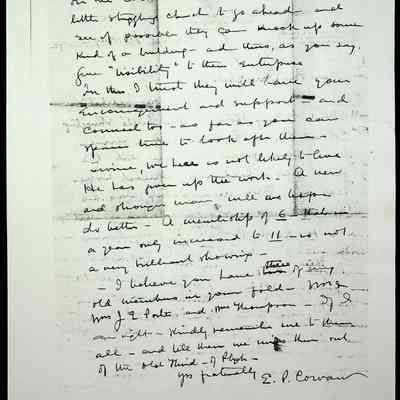 little struggling church to go ahead and
see if possible they can knock up some
kind of a building - and thus, as you say,
give "visibility" to their Enterprise
In this I trust they will have your
Encouragement and support - and
counsel too - as far as you can
spare time to look after them -
we hear is not likely to live
He has given up the work. A new
and stronger man will we hope
do better - A membership of 6 - that in
a year only increased to 11 - is not
a very brilliant showing -
- I believe you have three of
old members in your fold -
Mrs J E Porter and Mrs Thompson - If I
am right - Kindly remember me to them
all - and tell them we miss them out
of the old Third - of Pbgh -
yrs fraternally E. P. Cowan